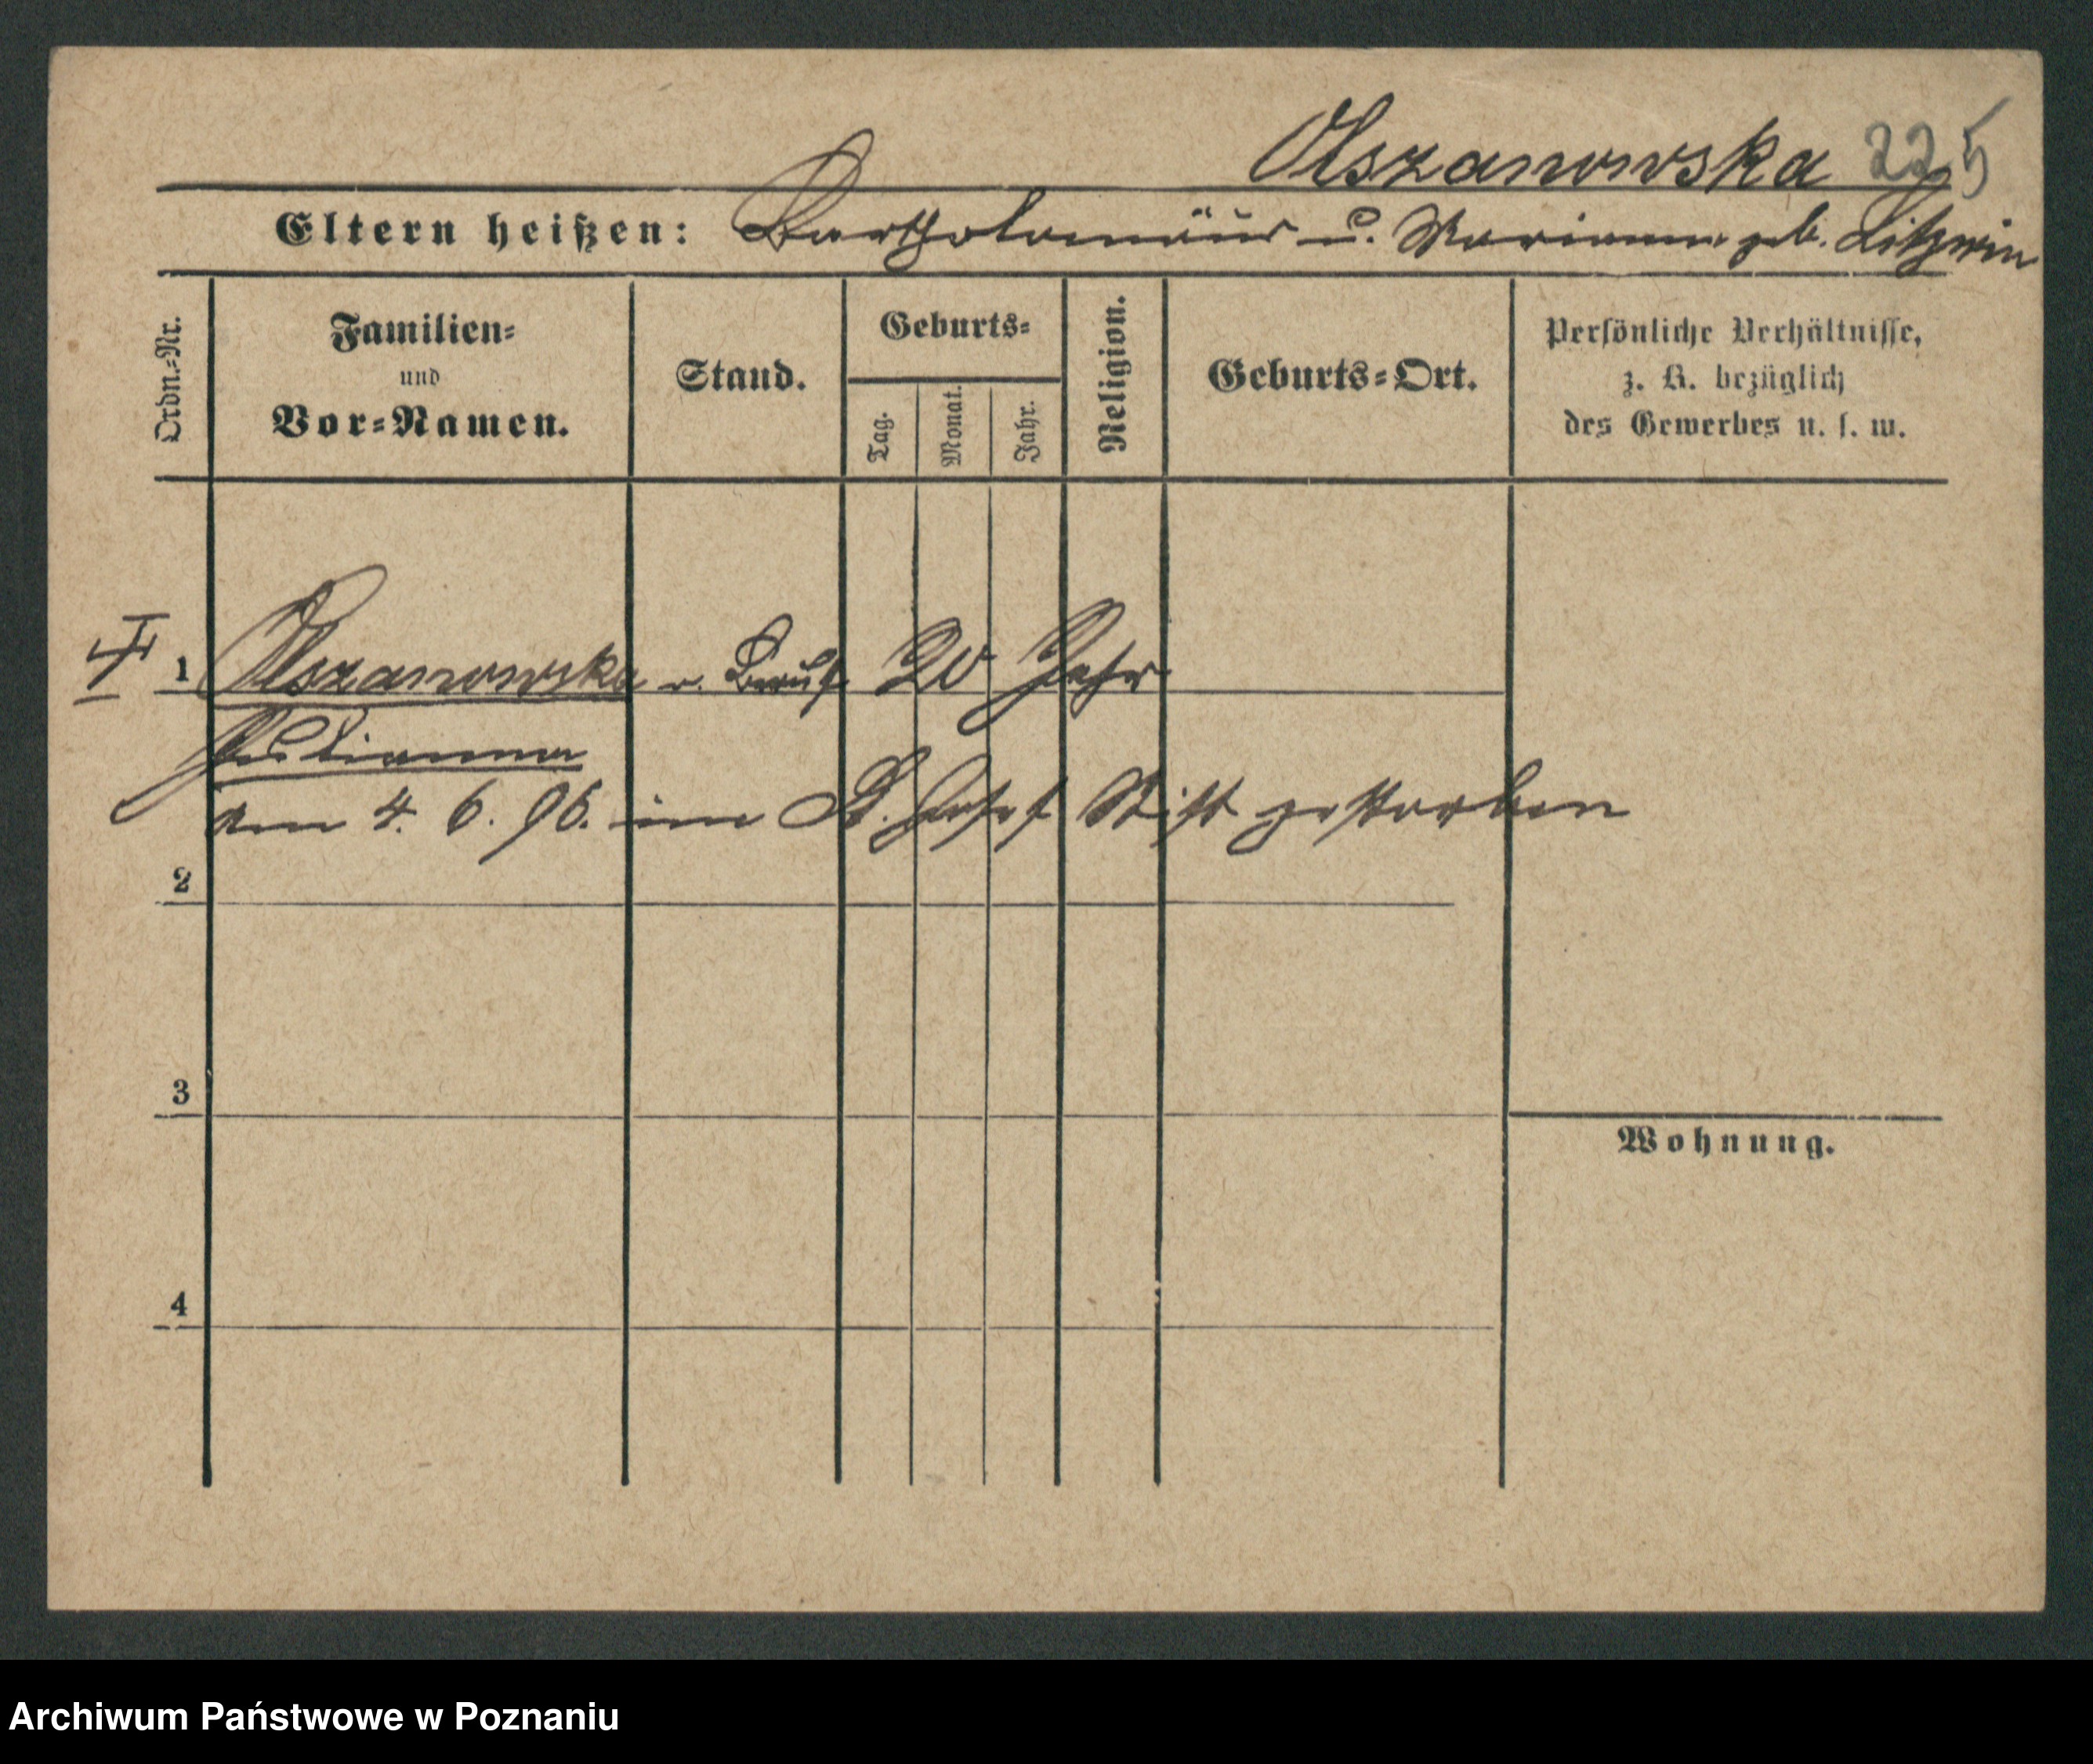 Olszanowska 225
Eltern heißen: Bartholomäus u. Marianna geb. Litzwin
Ordn.-Nr.
Familien-
und
Vor-Namen.
Stand.
Geburts-
Tag.
Monat.
Jahr.
Religion.
Geburts-Ort.
Persönliche Verhältnisse,
z. B. bezüglich
des Gewerbes u. s. w.
1 Olszanowska 20 Jahr
den 4. 6. 96. im St. Josef Stift gestorben
2
3
Wohnung.
4
Archiwum Państwowe w Poznaniu